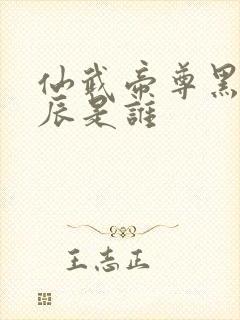 仙武帝尊黑
辰是誰
王志正